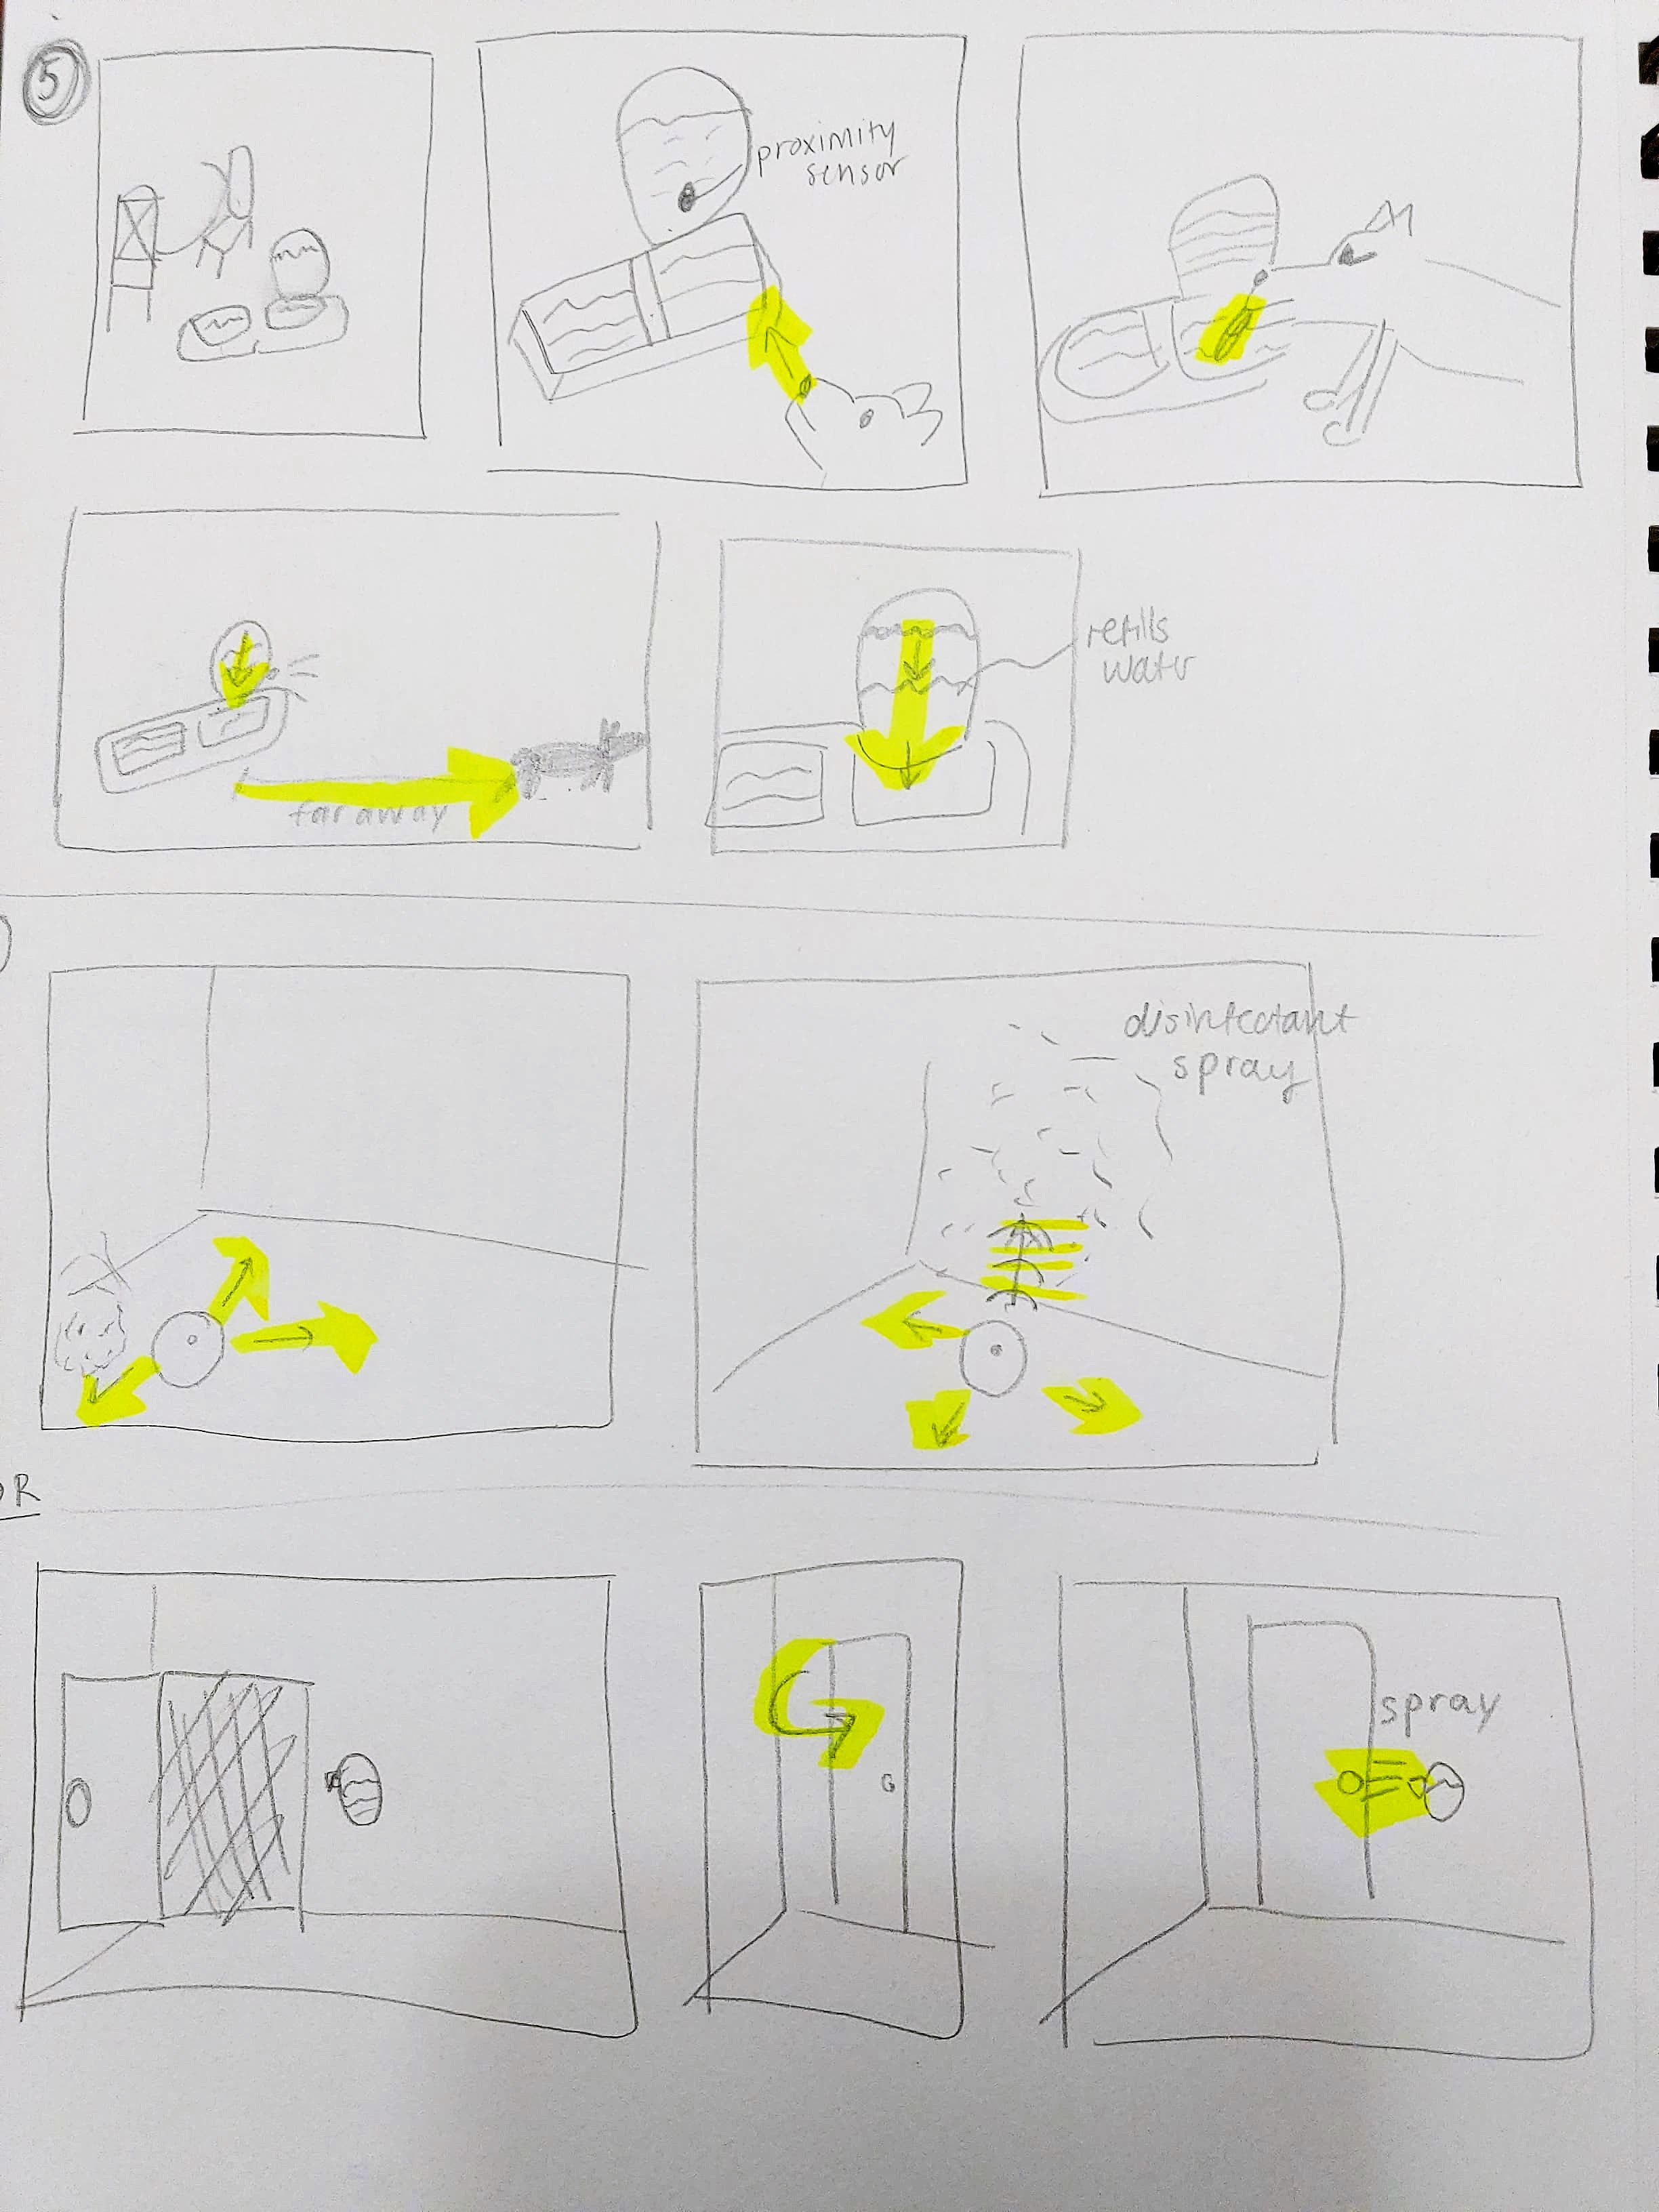 5
proximity
sensor
far away
refills
water
disinfectant
spray
OR
spray